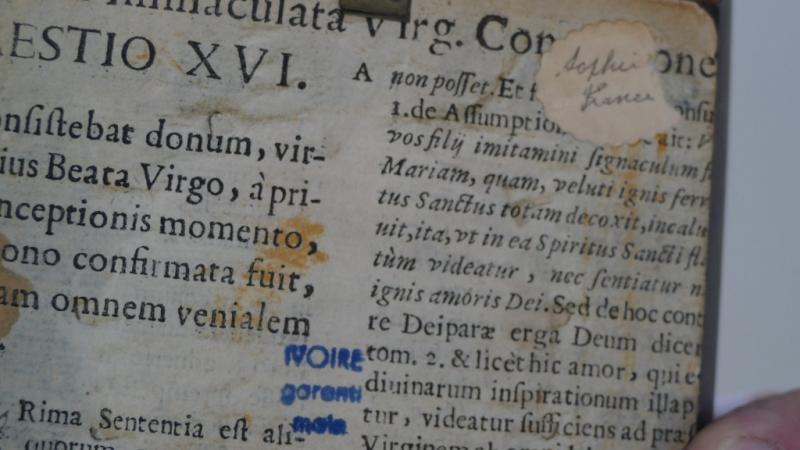 Immaculata Virg. Con
ESTIO XVI.
nsiſtebat donum, vir-
ius Beata Virgo, à pri-
nceptionis momento,
ono confirmata fuit,
am omnem venialem
Rima Sententia eſt ali-
quorum
A
non poſſet. Et
1. de Aſſumptio
vos filij imitamini ſignaculum
Mariam, quam, veluti ignis ferr
tus Sanctus totam decoxit, incalu
uit, ita, vt in ea Spiritus Sancti fl
tùm videatur, nec ſentiatur n
ignis amoris Dei. Sed de hoc cont
re Deiparæ erga Deum dicer
tom. 2. & licèt hic amor, qui e
diuinarum inſpirationum illap
tur, videatur ſufficiens ad præſ
Sophie
France
IVOIRE
garanti